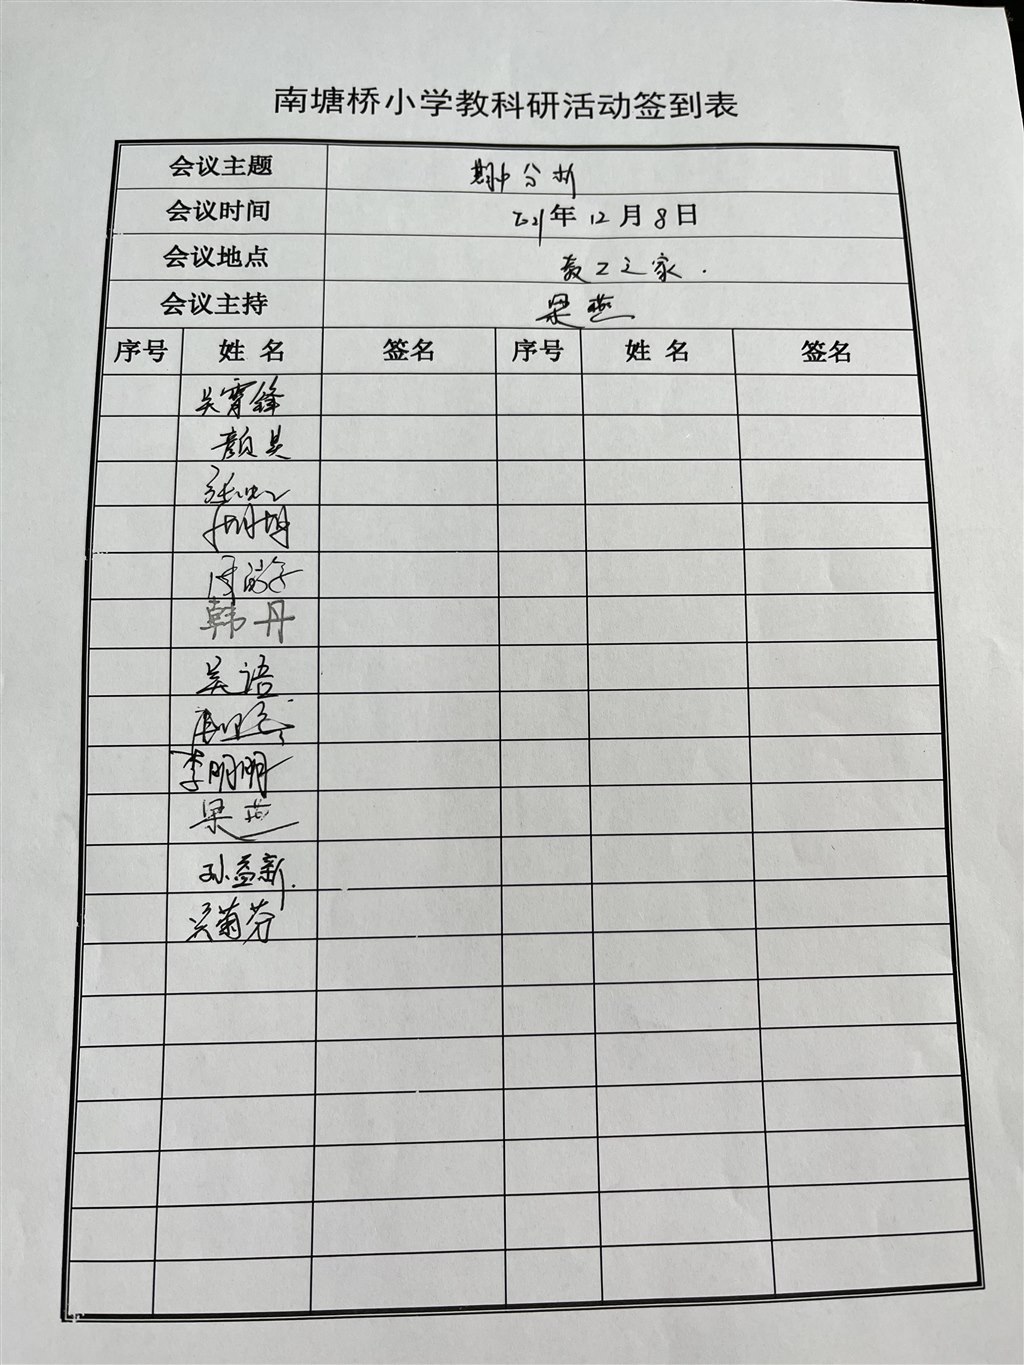 南塘桥小学教科研活动签到表
会议主题 期中分析
会议时间 2021年12月8日
会议地点 教工之家.
会议主持 梁燕
序号 姓 名 签名 序号 姓 名 签名
吴霄锋
颜昊
韩丹
吴语
李明明
梁燕
孙益新.
吴菊芬